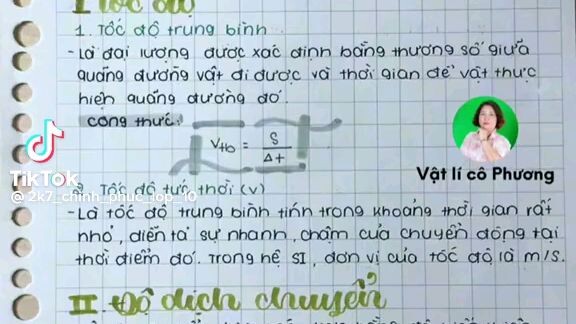 I Tốc độ
1. Tốc độ trung bình
- Là đại lượng được xác định bằng thương số giữa
quãng đường vật đi được và thời gian để vật thực
hiện quãng đường đó.
công thức:
Vtb = S / Δt
Vật lí cô Phương
TikTok
@ 2k7_chinh_phuc_top_10
2. Tốc độ tức thời (v)
- Là tốc độ trung bình tính trong khoảng thời gian rất
nhỏ, diễn tả sự nhanh, chậm của chuyển động tại
thời điểm đó. Trong hệ SI, đơn vị của tốc độ là m/s.
II. Độ dịch chuyển